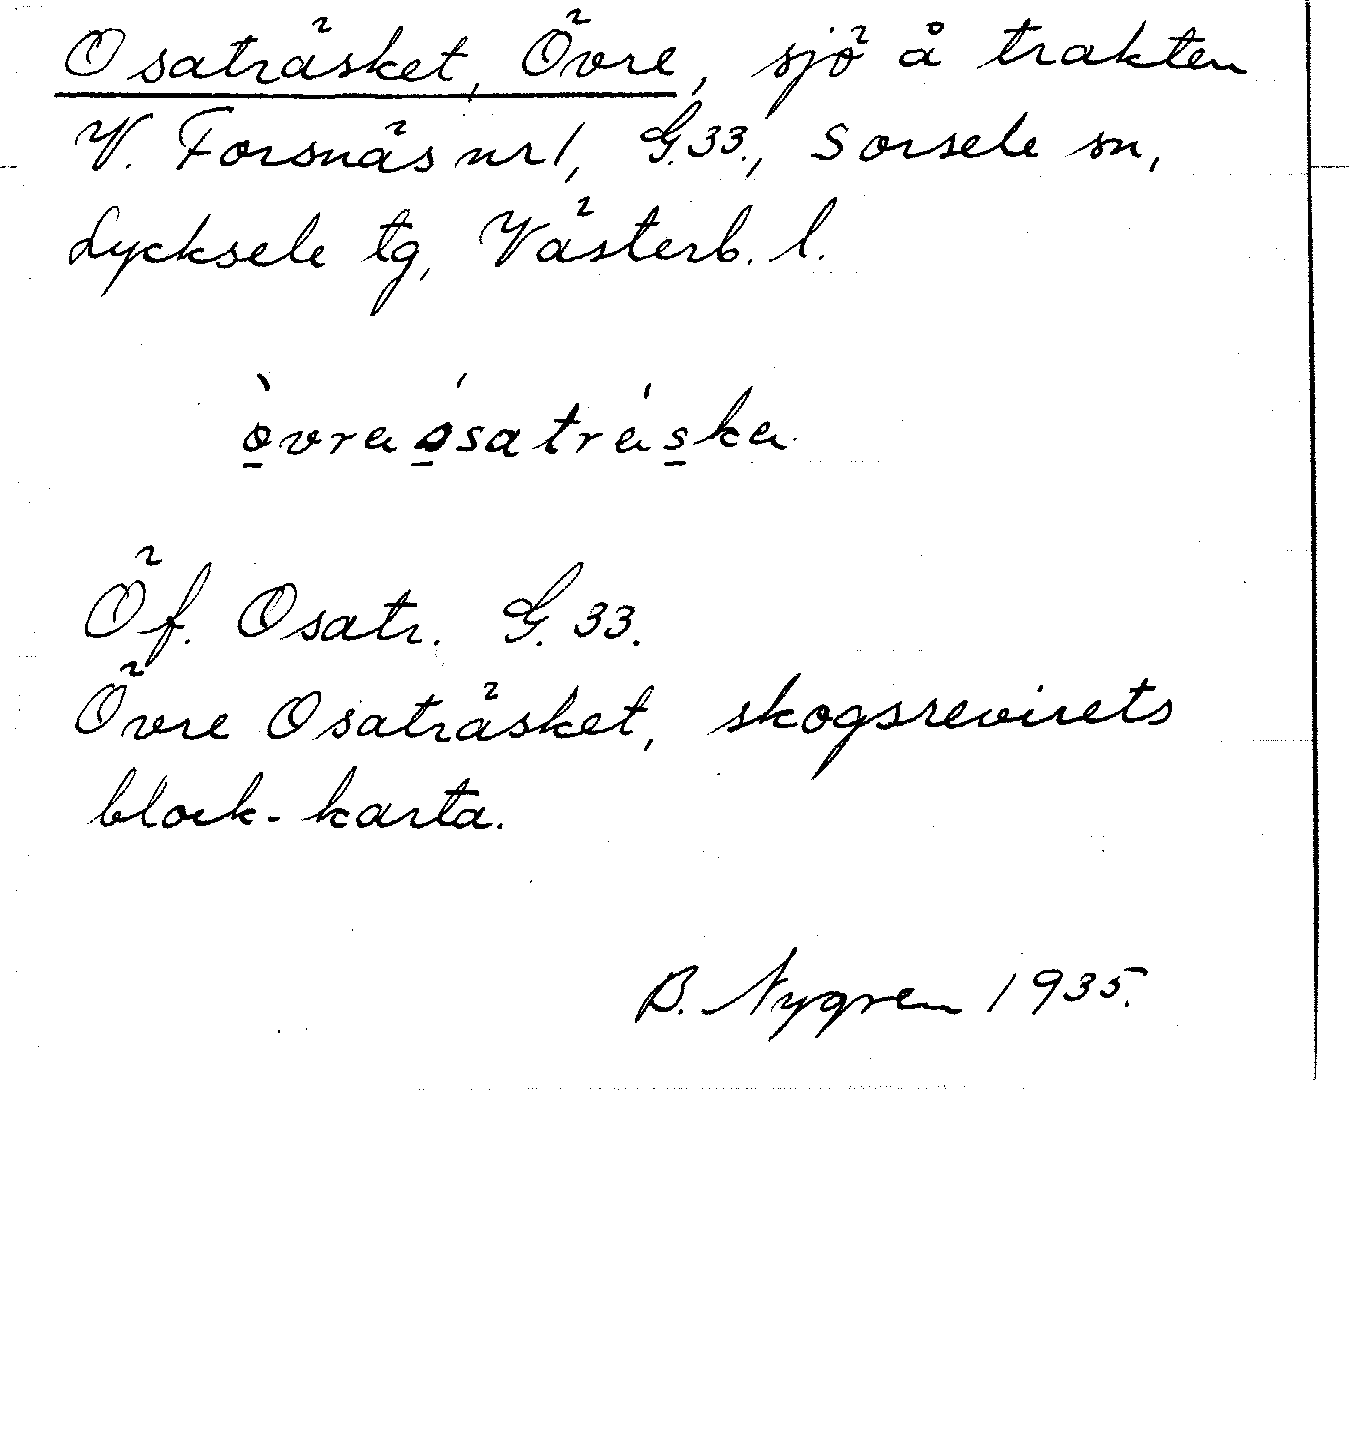 Osaträsket, Övre, sjö å trakten
V. Forsnäs nr 1, G.33., Sorsele sn,
Lycksele tg, Västerb. l.
òvra ósatráska
Öf. Osatr. G. 33.
Övre Osaträsket, skogsrevirets
block-karta.
B. Nygren 1935.